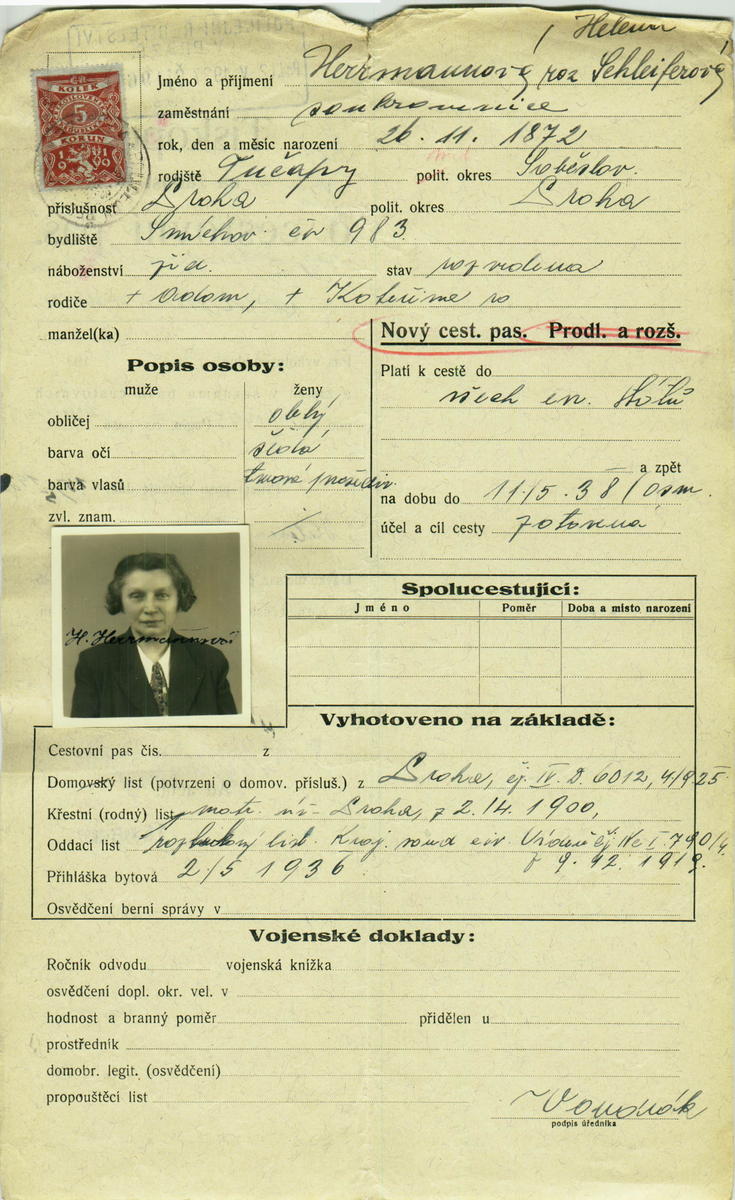 Helena
Jméno a příjmení Herrmannová roz Schleiferová
zaměstnání soukromnice
rok, den a měsíc narození 26. 11. 1872
rodiště Tučapy polit. okres Soběslav.
příslušnost Praha polit. okres Praha
bydliště Smíchov čp 983.
náboženství žid. stav rozvedena
rodiče + Adam, + Kateřina
manžel(ka)
Nový cest. pas. Prodl. a rozš.
Popis osoby:
muže ženy
obličej oblý
barva očí šedá
barva vlasů tmavá prošediv.
zvl. znam. /
Platí k cestě do
všech evr. států
a zpět
na dobu do 11./5. 38
účel a cíl cesty zotavená
KOLEK
5
KORUN
1919
H. Herrmannová
Spolucestující:
Jméno Poměr Doba a místo narození
Vyhotoveno na základě:
Cestovní pas čís. z
Domovský list (potvrzení o domov. přísluš.) z Praha, čj. IV. D. 6012, 4/9 25
Křestní (rodný) list matr. úř. Praha, z 2. 14. 1900,
Oddací list rozlukový list. Kraj. soud civ. Vídeň čj Nc I 790/4.
z 9. 12. 1919.
Přihláška bytová 2/5 1936
Osvědčení berní správy v
Vojenské doklady:
Ročník odvodu vojenská knížka
osvědčení dopl. okr. vel. v
hodnost a branný poměr přidělen u
prostředník
domobr. legit. (osvědčení)
propouštěcí list
Vondrák
podpis úředníka